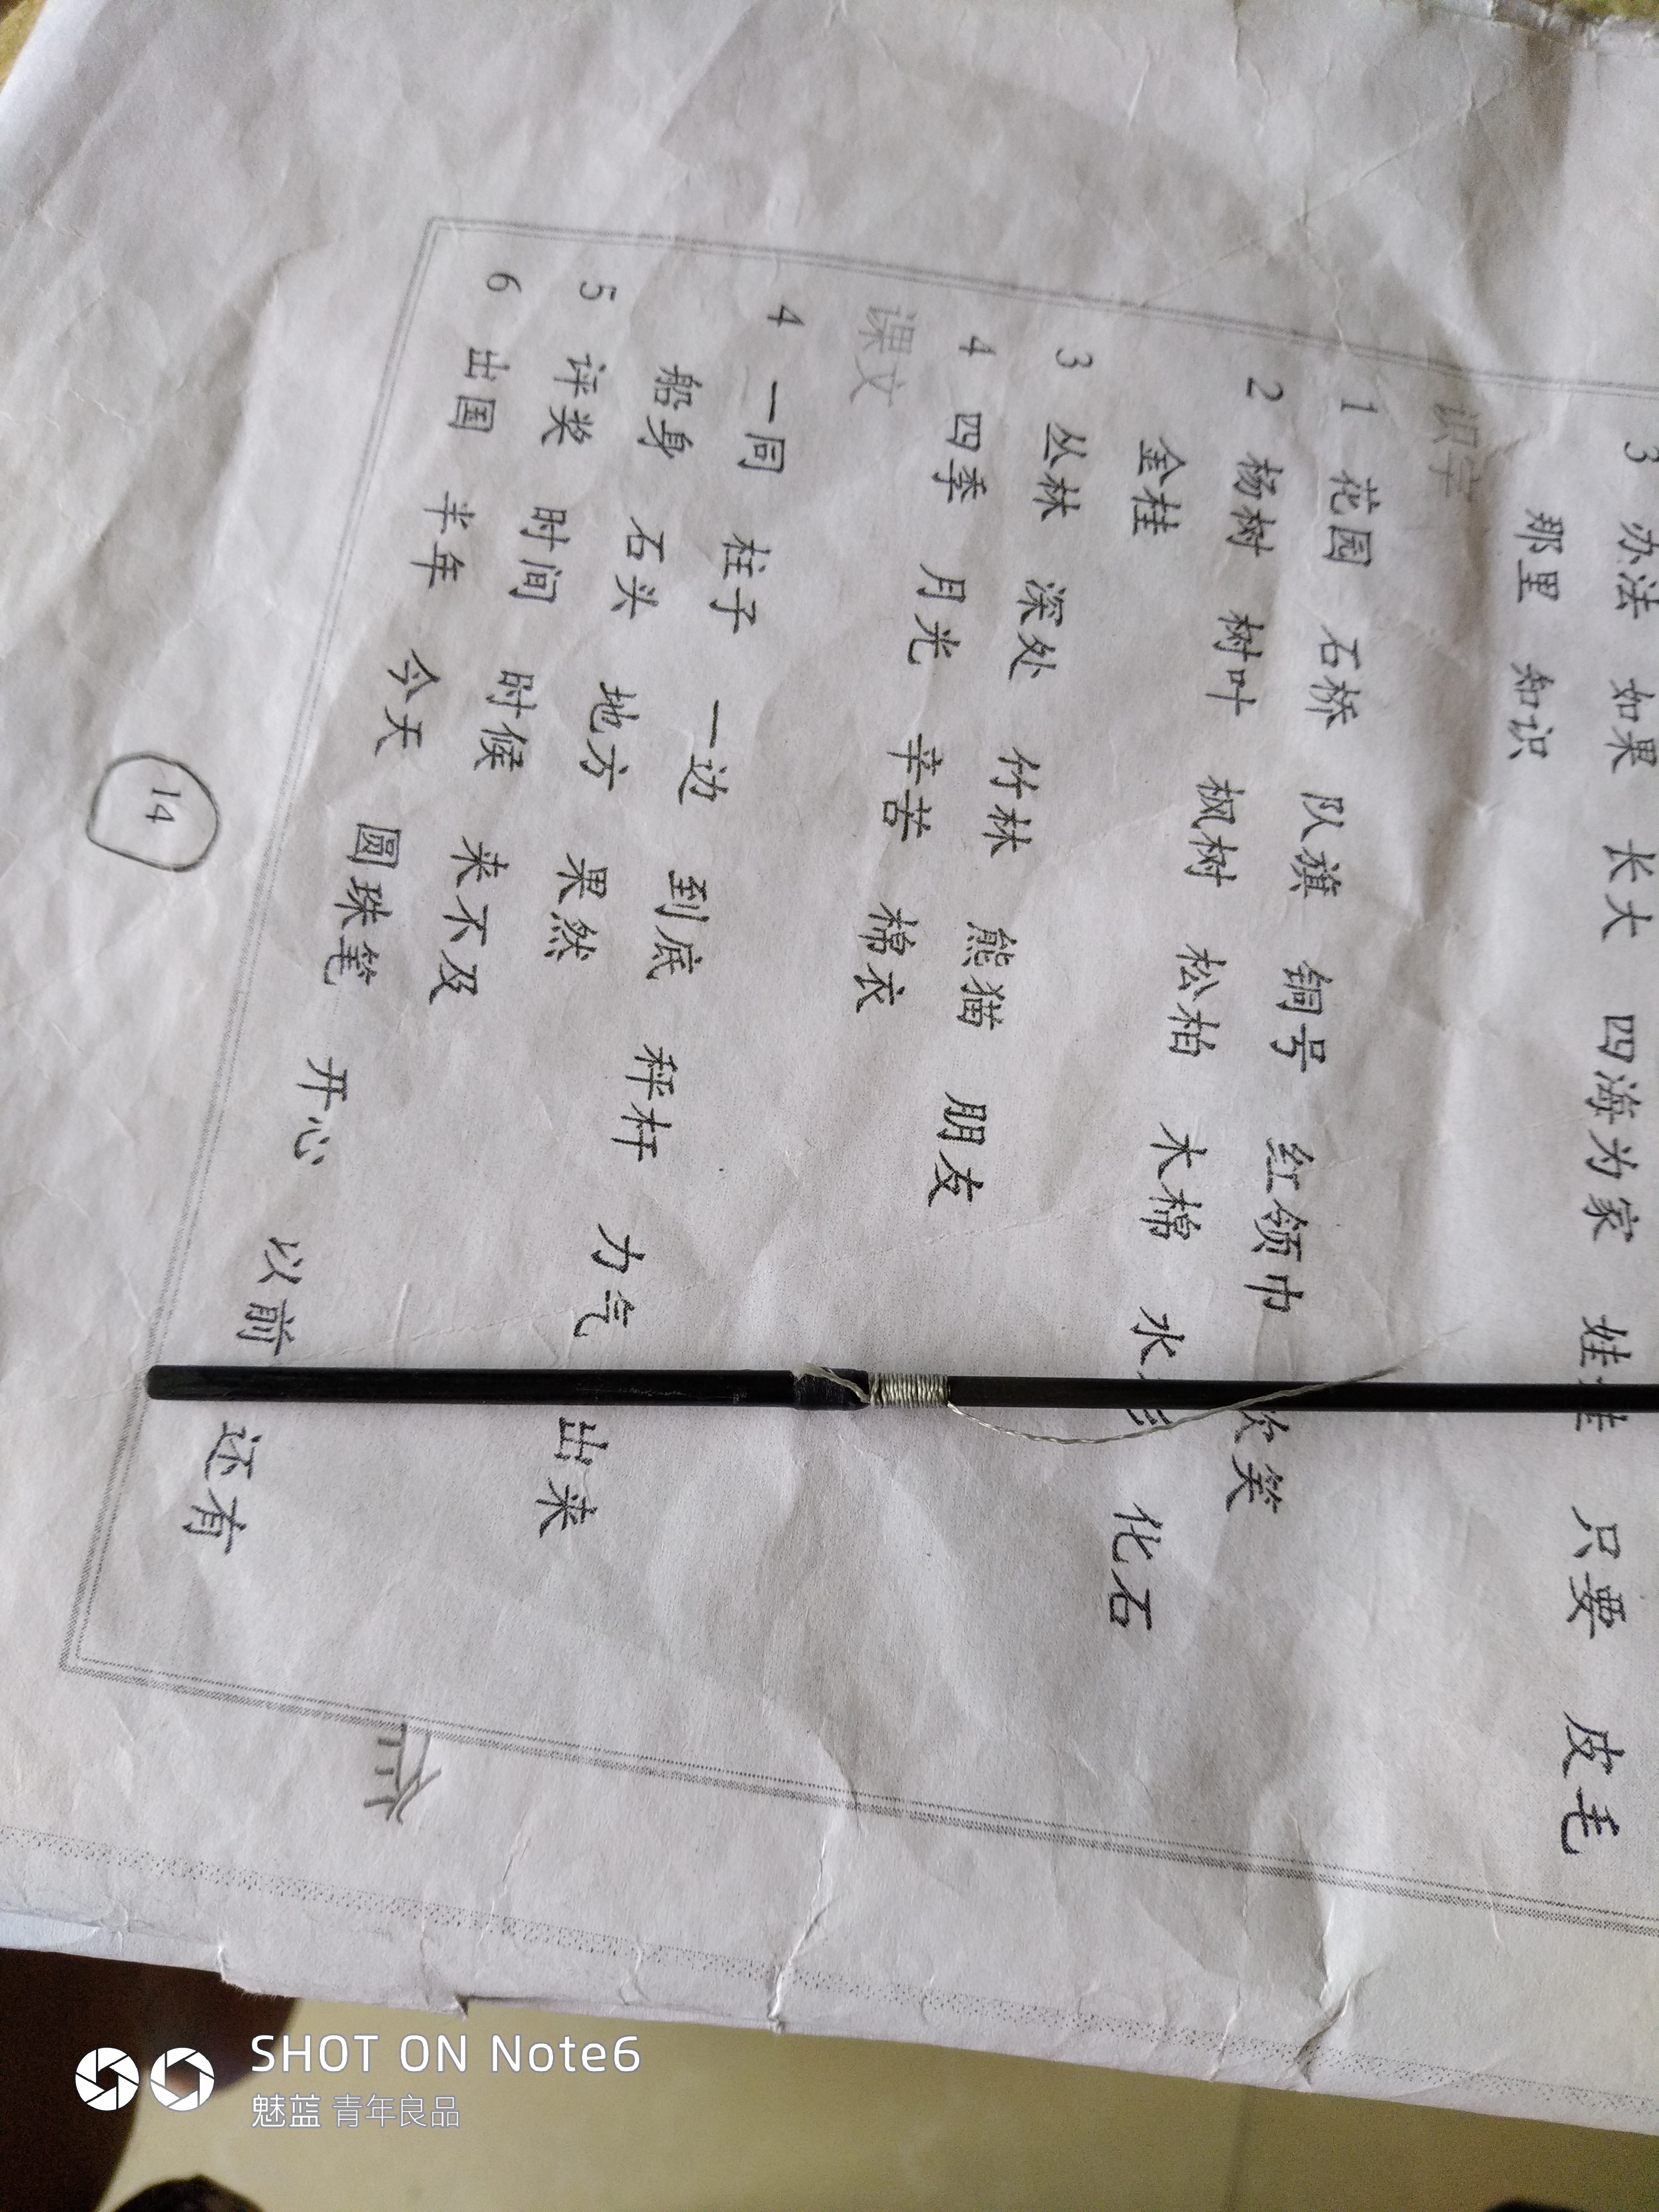 3 办法 如果 长大 四海为家 娃娃 只要 皮毛
那里 知识
识字
1 花园 石桥 队旗 铜号 红领巾 欢笑
2 杨树 树叶 枫树 松柏 木棉 水 化石
金桂
3 丛林 深处 竹林 熊猫 朋友
4 四季 月光 辛苦 棉衣
课文
4 一同 柱子 一边 到底 秤杆 力气 出来
船身 石头 地方 果然
5 评奖 时间 时候 来不及
6 出国 半年 今天 圆珠笔 开心 以前 还有
14
SHOT ON Note6
魅蓝 青年良品